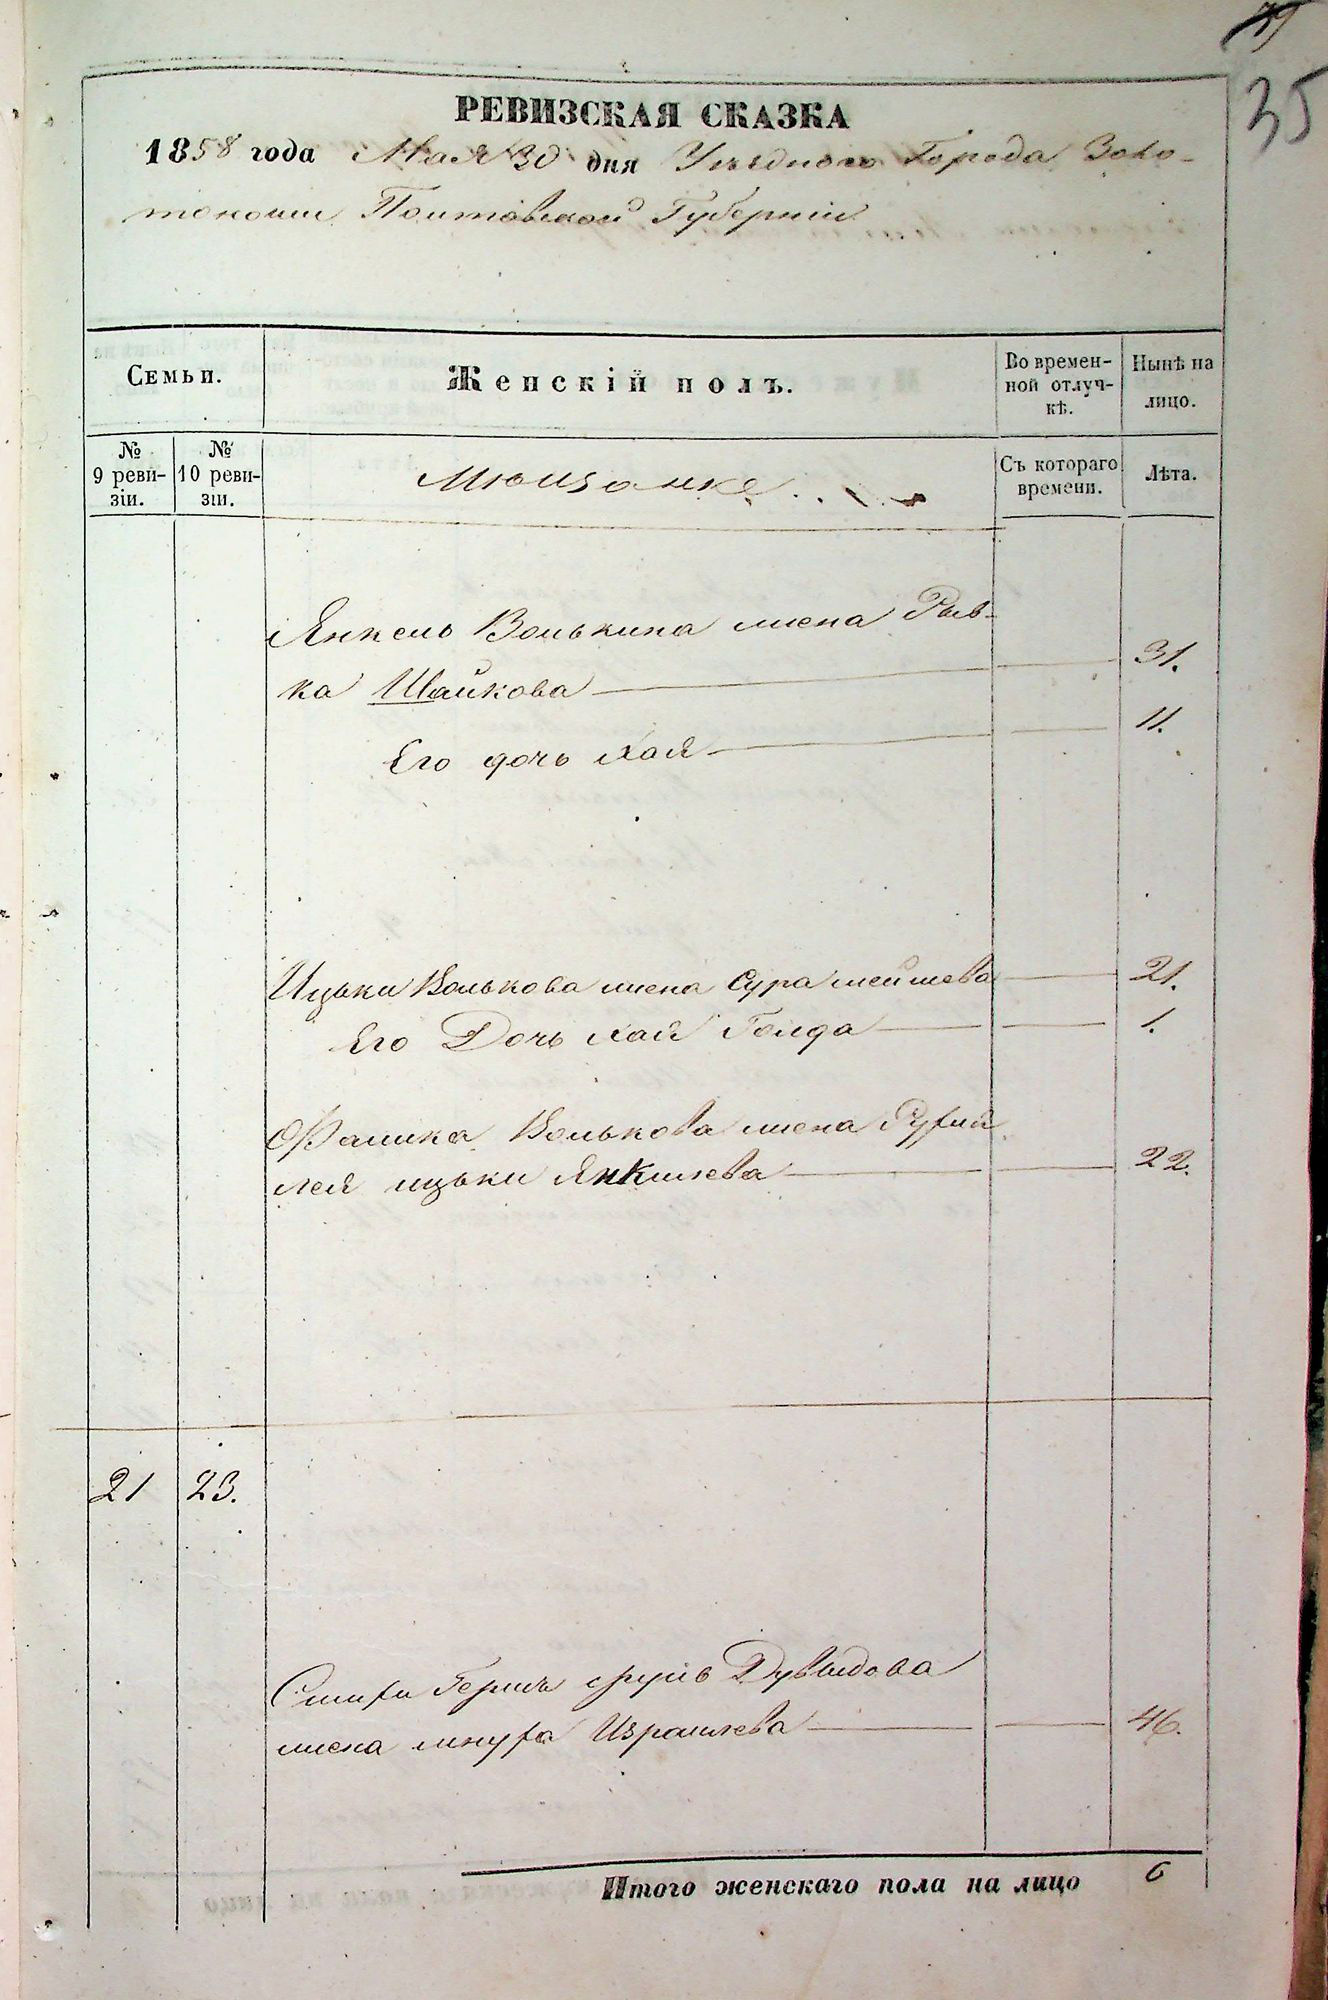 35
РЕВИЗСКАЯ СКАЗКА
1858 года Мая 30 дня Уѣзднаго Города Золо-
тоноши Полтавской Губерніи
Семьи. Женскій полъ. Во времен-ной отлуч-кѣ. Нынѣ на лицо.
№ 9 реви-зіи. № 10 реви-зіи. Мѣщанке Съ котораго времени. Лѣта.
Янкель Волькина жена Рыв-
ка Шайкова 31.
Его дочь Хая 11.
Ицьки Волькова жена Сура 21.
Его Дочь Хая Голда 1.
Фалика Волькова жена
лея ицьки Янкилева 22.
21 23.
Дувыдова
жена Израилева 46.
Итого женскаго пола на лицо 6